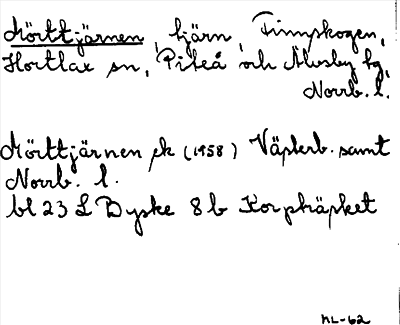 Mörttjärnen, tjärn, Finnskogen,
Hortlax sn, Piteå och Älvsby tg,
Norrb. l.
Mörttjärnen ek (1958) Västerb. samt
Norrb. l.
bl 23 L Byske 8b Korsträsket
ML-62